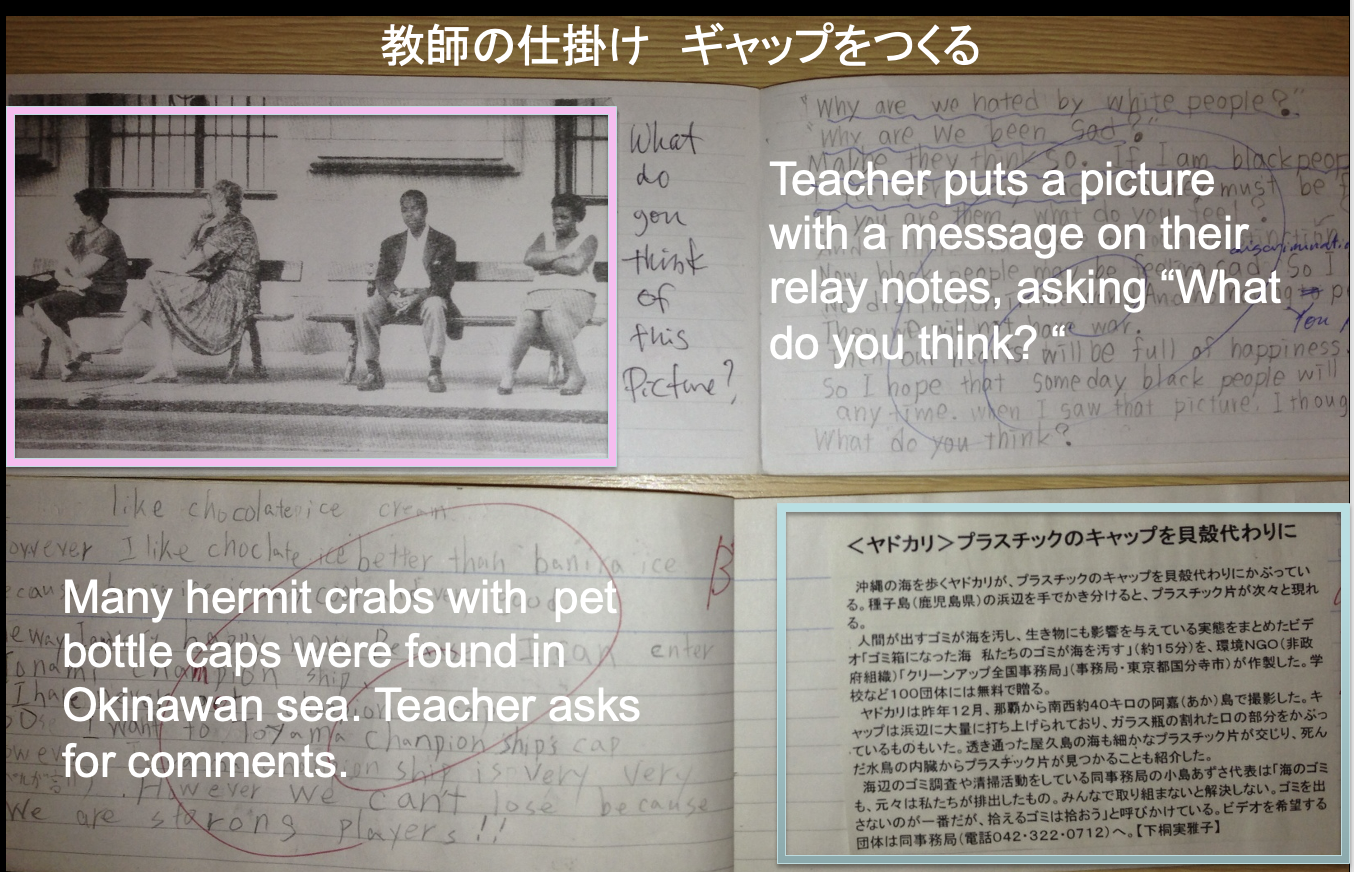 教師の仕掛け　ギャップをつくる
What
do
you
think
of
this
Picture?
"Why are we hated by white people?"
"Why are we been sad?"
Maybe they think so. If I am black peop
must be
you are them, what do you feel?
discriminati
Now black people may be feeling sad. So I
Then will not have war.
will be full of happiness.
So I hope that someday black people will
any time. when I saw that picture, I thoug
What do you think?
You
Teacher puts a picture
with a message on their
relay notes, asking “What
do you think? “
like chocolate ice cream
owever I like choclate ice better than banira ice
ecau
I can enter
Tonami champion ship
I have
I want to Toyama chanpion ship's cap
owever ship is very very
. However we can't lose because
We are starong players!!
B
Many hermit crabs with pet
bottle caps were found in
Okinawan sea. Teacher asks
for comments.
＜ヤドカリ＞プラスチックのキャップを貝殻代わりに
沖縄の海を歩くヤドカリが、プラスチックのキャップを貝殻代わりにかぶってい
る。種子島（鹿児島県）の浜辺を手でかき分けると、プラスチック片が次々と現れ
る。
人間が出すゴミが海を汚し、生き物にも影響を与えている実態をまとめたビデ
オ「ゴミ箱になった海　私たちのゴミが海を汚す」（約15分）を、環境NGO（非政
府組織）「クリーンアップ全国事務局」（事務局・東京都国分寺市）が作製した。学
校など100団体には無料で贈る。
ヤドカリは昨年12月、那覇から南西約40キロの阿嘉（あか）島で撮影した。キ
ャップは浜辺に大量に打ち上げられており、ガラス瓶の割れた口の部分をかぶっ
ているものもいた。透き通った屋久島の海も細かなプラスチック片が交じり、死ん
だ水鳥の内臓からプラスチック片が見つかることも紹介した。
海辺のゴミ調査や清掃活動をしている同事務局の小島あずさ代表は「海のゴミ
も、元々は私たちが排出したもの。みんなで取り組まないと解決しない。ゴミを出
さないのが一番だが、拾えるゴミは拾おう」と呼びかけている。ビデオを希望する
団体は同事務局（電話042・322・0712）へ。【下桐実雅子】